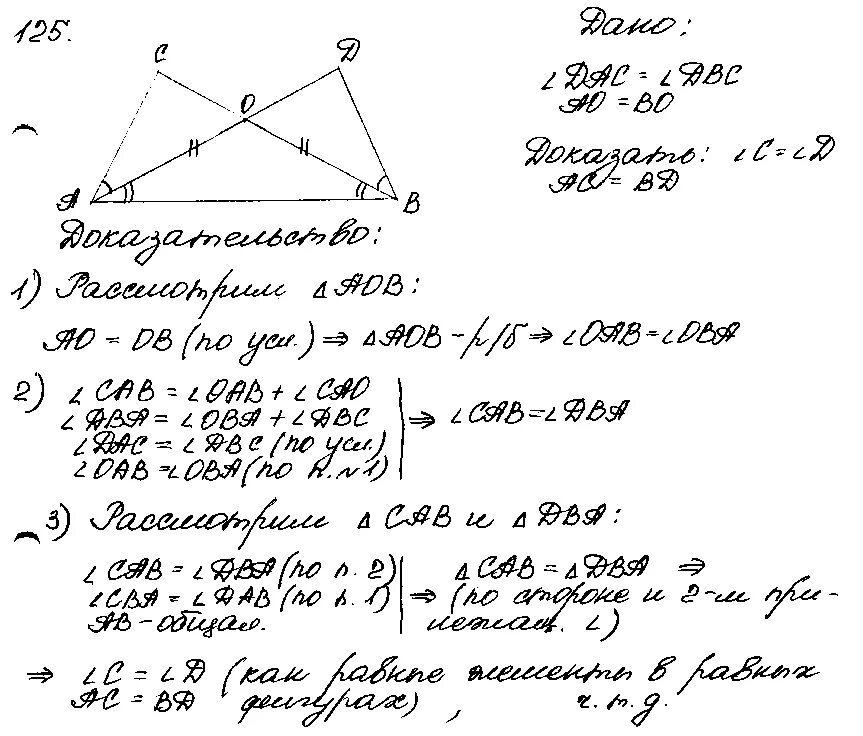 125.
Дано:
∠DAC = ∠DBC
AO = BO
Доказать: ∠C = ∠D
AC = BD
C
D
O
A
B
Доказательство:
1) Рассмотрим △AOB:
AO = OB (по усл.) ⇒ △AOB – р/б ⇒ ∠OAB = ∠OBA
2) ∠CAB = ∠OAB + ∠CAO
∠DBA = ∠OBA + ∠DBC
∠DAC = ∠DBC (по усл.)
∠OAB = ∠OBA (по п. №1)
⇒ ∠CAB = ∠DBA
3) Рассмотрим △CAB и △DBA:
∠CAB = ∠DBA (по п. 2)
∠CBA = ∠DAB (по п. 1)
AB – общая.
△CAB = △DBA ⇒
⇒ (по стороне и 2-м при-
лежащ. ∠)
⇒ ∠C = ∠D (как равные элементы в равных
AC = BD фигурах), ч.т.д.